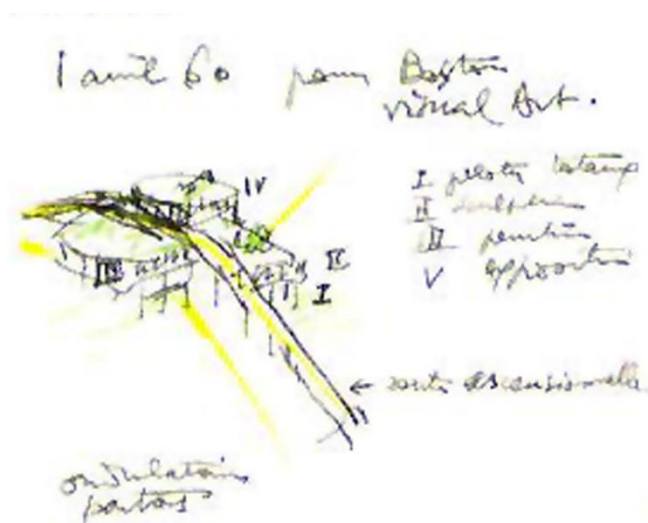 1 avril 60 pour Boston
visual Art.
IV
III
II
I
I pilotis
II sculpture
III peinture
V exposition
← route ascensionnelle
ondulatoires